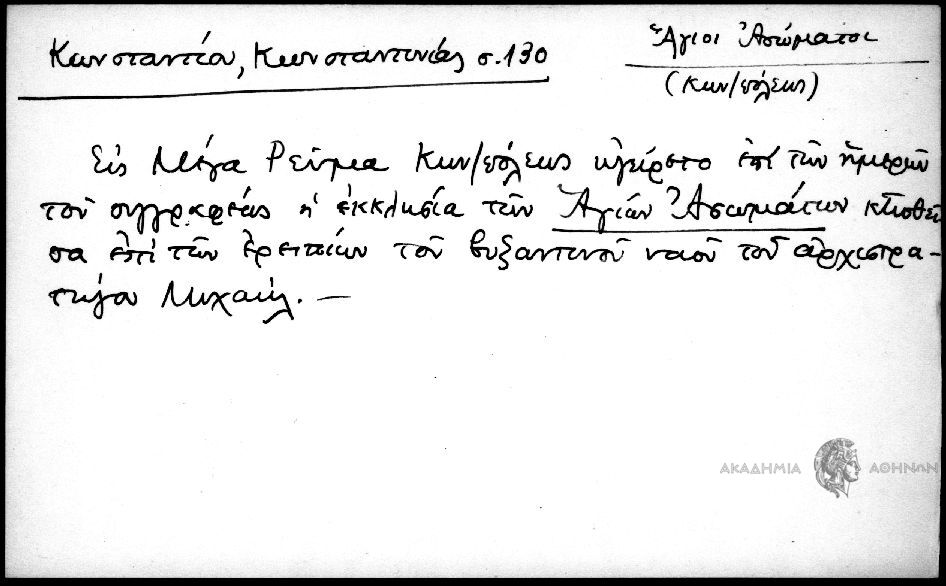 Κωνσταντίου, Κωνσταντινιάς σ. 130
Ἅγιοι Ἀσώματοι
(Κων/πόλεως)
Εἰς Μέγα Ρεῦμα Κων/πόλεως ἠγείρετο ἐπί τῶν ἡμερῶν
τοῦ συγγραφέως ἡ ἐκκλησία τῶν Ἁγίων Ἀσωμάτων κτισθεῖ
σα ἐπί τῶν ἐρειπίων τοῦ βυζαντινοῦ ναοῦ τοῦ ἀρχιστρα-
τήγου Μιχαήλ. —
ΑΚΑΔΗΜΙΑ ΑΘΗΝΩΝ